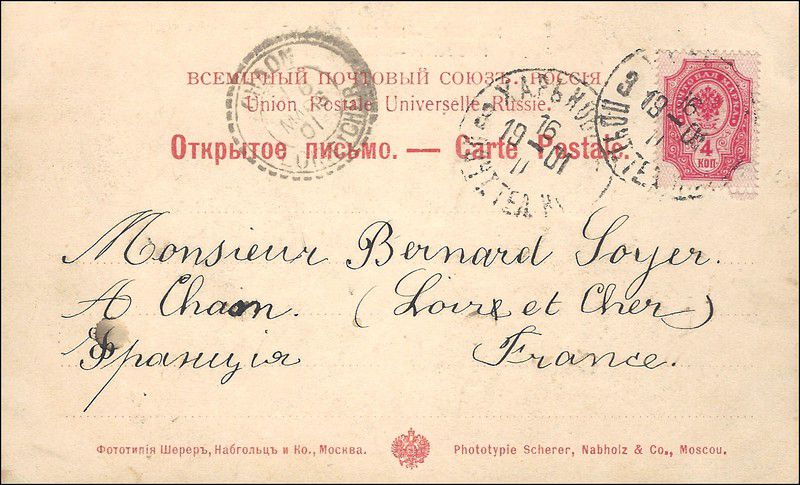 ВСЕМІРНЫЙ ПОЧТОВЫЙ СОЮЗЪ. РОССІЯ.
Union Postale Universelle. Russie.
Открытое письмо. — Carte Postale.
CHAON
ХАРЬКОВ
16
19 01
16
19 01
ПОЧТОВАЯ МАРКА
4
КОП
Monsieur Bernard Soyer.
A Chaon. (Loire et Cher)
Франція France.
Фототипія Шереръ, Набгольцъ и Ко., Москва. Phototypie Scherer, Nabholz & Co., Moscou.